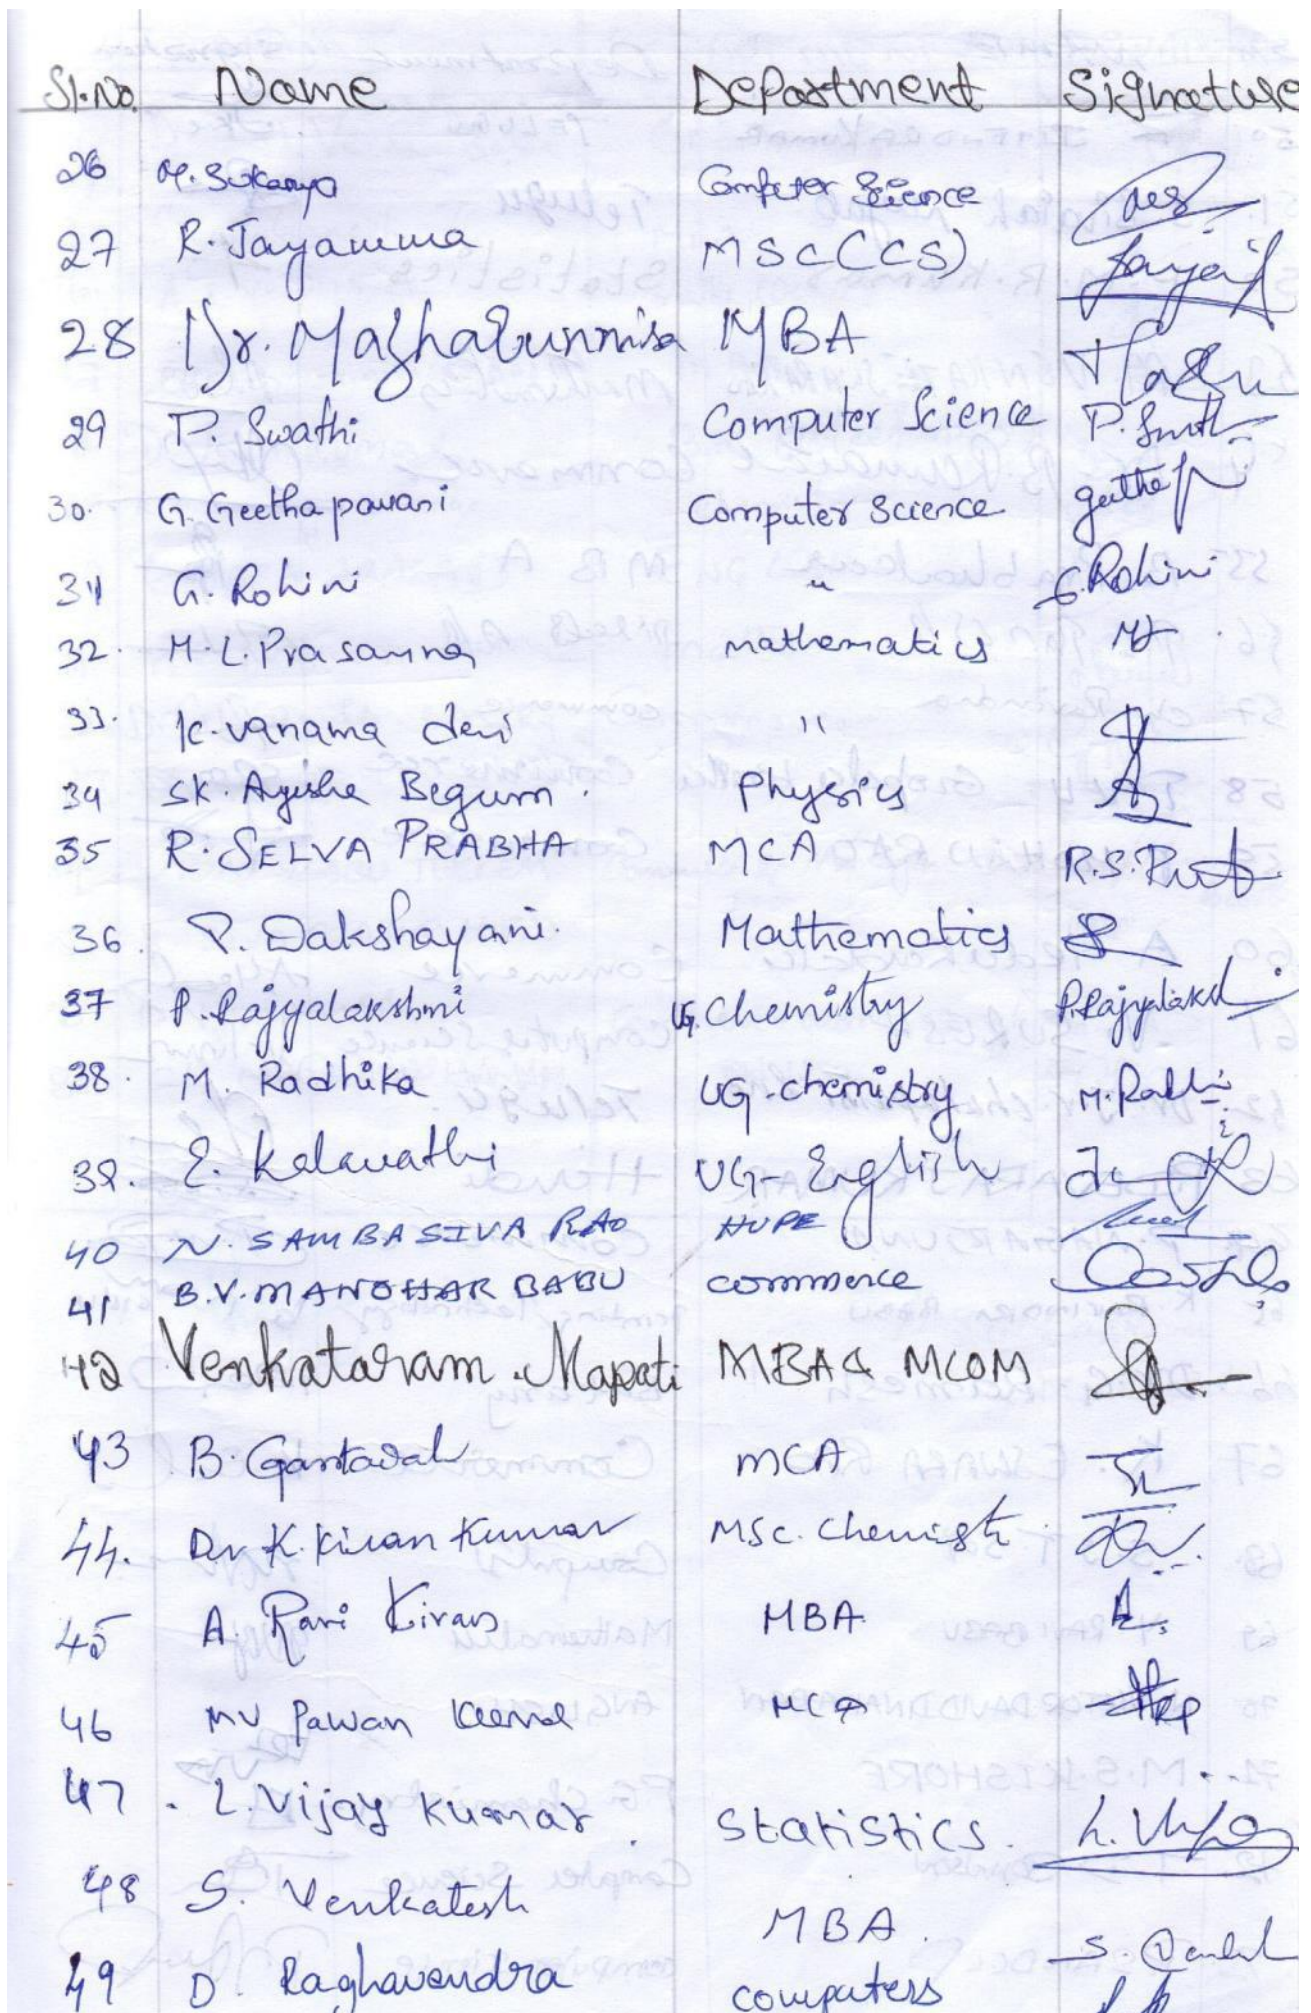 Sl.No. Name Department Signature
26 M. Sukanya Computer Science
27 R. Jayamma MSC (CS)
28 Dr. Mazhabunnisa MBA
29 P. Swathi Computer Science P. Swath
30. G. Geetha pavani Computer Science
31 G. Rohini " G. Rohini
32. M. L. Prasanna mathematics
33. K. vanama devi "
34 SK. Ayesha Begum. Physics
35 R. SELVA PRABHA MCA
36. P. Dakshayani. Mathematics
37 P. Rajyalakshmi UG. Chemistry P. Rajyalaksh
38. M. Radhika UG - chemistry
39. E. Kalavathi UG - English
40 N. SAMBASIVA RAO HUPE
41 B.V. MANOHAR BABU commerce
42 Venkataram. Mapati MBA & MCOM
43 B. MCA
44. Dr K. Kiran Kumar MSc.
45 A. Ravi Kiran MBA
46 MV Pawan MCA
47. L. Vijay Kumar. Statistics.
48 S. Venkatesh MBA.
49 D. Raghavendra computers